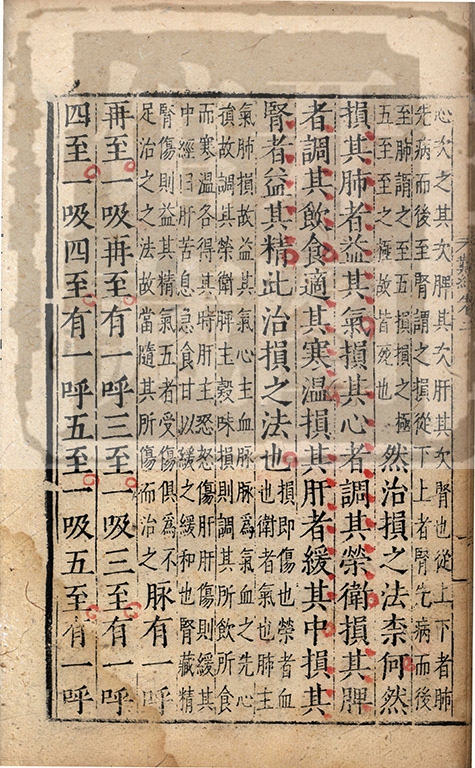 心次之其次脾其次肝其次腎也從上下者肺
先病而後至腎謂之損從下上者腎先病而後
至肺謂之至五損損之極
五至至之極故皆死也
然治損之法柰何然
損其肺者益其氣損其心者調其榮衛損其脾
者調其飲食適其寒温損其肝者緩其中損其
腎者益其精此治損之法也
損即傷也榮者血
也衛者氣也肺主
氣肺損故益其氣心主血脉脉爲氣血之先心
損故調其榮衛脾主穀味損則調其所飲所食
而寒温各得其時肝主怒怒傷肝肝傷則緩其
中經曰肝苦急急食甘以緩之緩和也腎藏精
腎傷則益其精氣五者受傷俱爲不
足治之之法故當隨其所傷而治之
脉有一呼
再至一吸再至有一呼三至一吸三至有一呼
四至一吸四至有一呼五至一吸五至有一呼